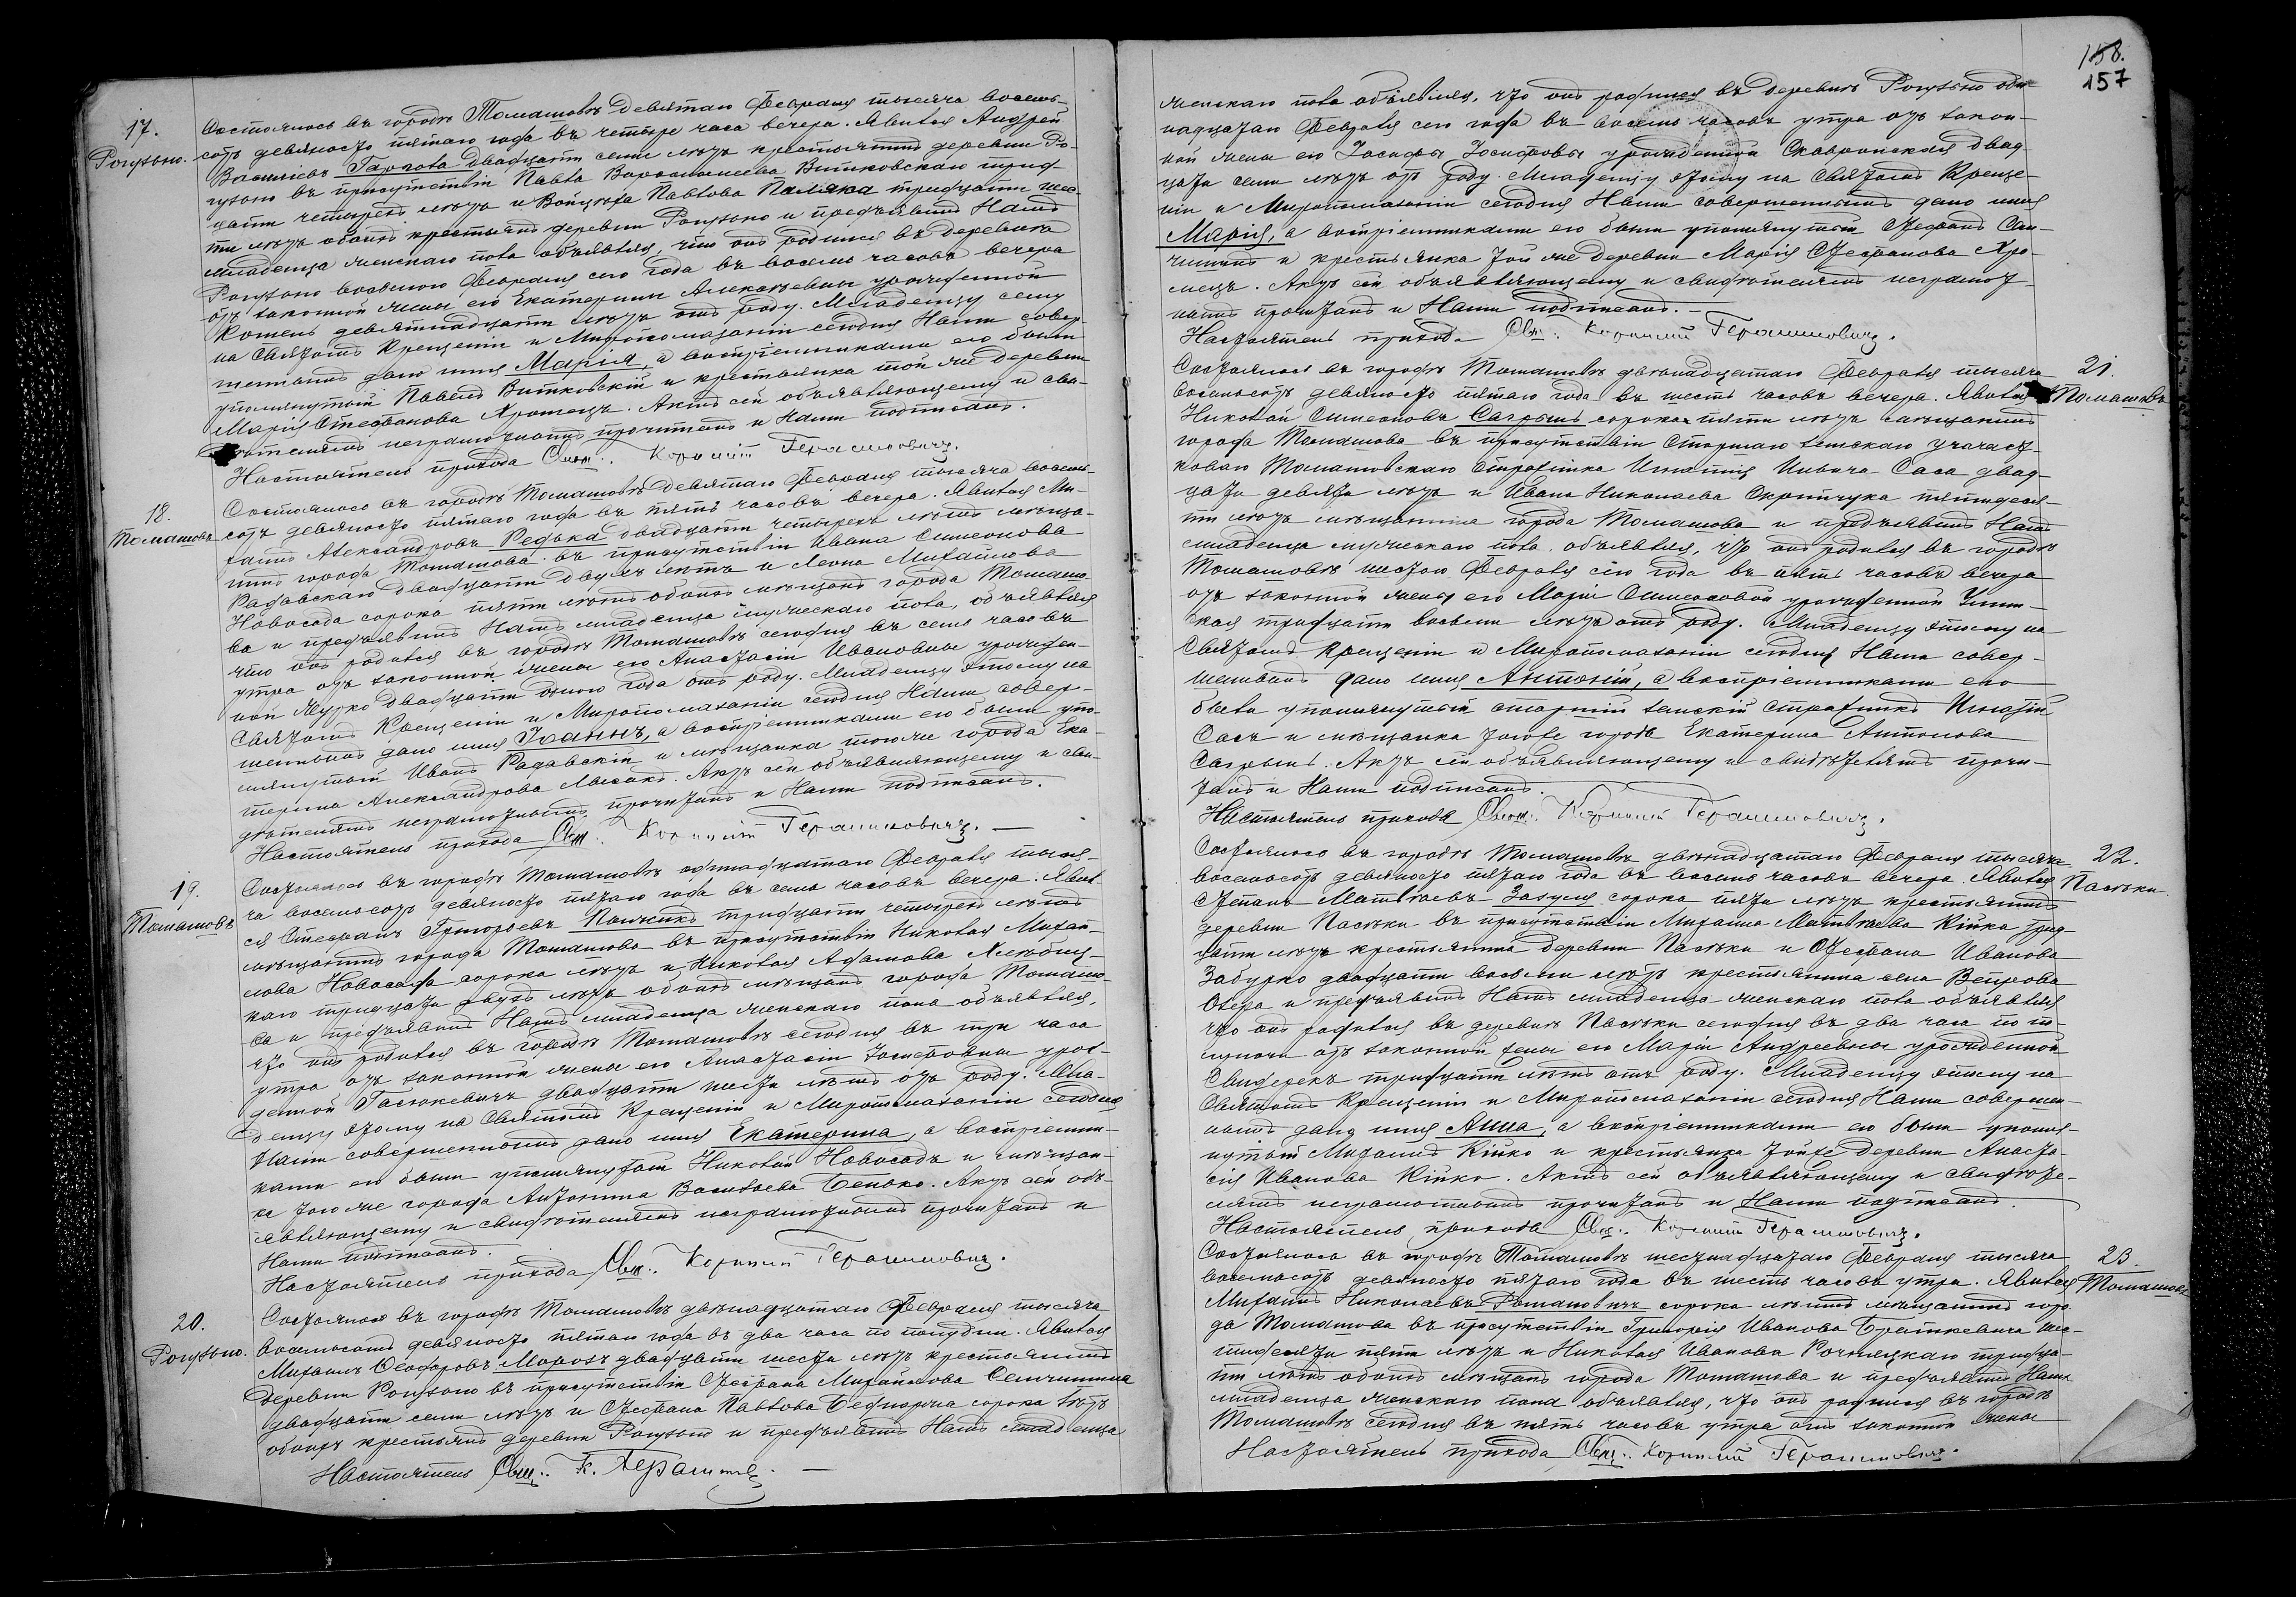 17.
Рогузьно.
Состоялось въ городѣ Томашовѣ девятаго Февраля тысяча восемь-
сотъ девяносто пятаго года въ четыре часа вечера. Явился Андрей
Васильевъ двадцати семи лѣтъ крестьянинъ деревни Ро-
гузьно въ присутствіи Павла Варѳоломеева Витковскаго трид-
цати четырехъ лѣтъ и Войцѣха Павлова Паляка тридцати шес-
ти лѣтъ обоихъ крестьянъ деревни Рогузьно и предъявилъ Намъ
младенца женскаго пола объявляя, что онъ родился въ деревнѣ
Рогузьно восьмого Февраля сего года въ восемь часовъ вечера
отъ законной жены его Екатерины Алексѣевны урожденной
Котель девятнадцати лѣтъ отъ роду. Младенцу сему
на Святомъ Крещеніи и Миропомазаніи сегодня Нами совер-
шенномъ дано имя Марія, а воспріемниками его были
упомянутый Павелъ Витковскій и крестьянка той же деревни
Марія Стефанова Яромецъ. Актъ сей объявляющему и сви-
дѣтелямъ неграмотнымъ прочитанъ и Нами подписанъ.
Настоятель прихода Свящ. Корнилій Герасимовичъ.
18.
Томашовъ
Состоялось въ городѣ Томашовѣ девятаго Февраля тысяча восемь-
сотъ девяносто пятаго года въ пять часовъ вечера. Явился Ми-
хаилъ Александровъ Редька двадцати четырехъ лѣтъ мѣща-
нинъ города Томашова въ присутствіи Ивана Симеонова
Радавскаго двадцати двухъ лѣтъ и Леона Михайлова
Новосада сорока пяти лѣтъ обоихъ мѣщанъ города Томашо-
ва и предъявилъ Намъ младенца мужескаго пола, объявляя
что онъ родился въ городѣ Томашовѣ сегодня въ семь часовъ
утра отъ законной жены его Анастасіи Ивановны урожден-
ной двадцати одного года отъ роду. Младенцу этому на
Святомъ Крещеніи и Миропомазаніи сегодня Нами совер-
шенномъ дано имя Іоаннъ, а воспріемниками его были упо-
мянутый Иванъ Радавскій и мѣщанка тогоже города Ека-
терина Александрова Лысакъ. Актъ сей объявляющему и сви-
дѣтелямъ неграмотнымъ прочитанъ и Нами подписанъ.
Настоятель прихода Свящ. Корнилій Герасимовичъ.
19.
Томашовъ
Состоялось въ городѣ Томашовѣ одинадцатаго Февраля тыся-
ча восемьсотъ девяносто пятаго года въ семь часовъ вечера. Явил-
ся Стефанъ Григорьевъ тридцати четырехъ лѣтъ
мѣщанинъ города Томашова въ присутствіи Николая Михай-
лова Новосада сорока лѣтъ и Николая Адамова
каго тридцати двухъ лѣтъ обоихъ мѣщанъ города Томашо-
ва и предъявилъ Намъ младенца женскаго пола объявляя,
что онъ родился въ городѣ Томашовѣ сегодня въ три часа
утра отъ законной жены его Анастасіи Іосифовны урож-
денной Гасюкевичъ двадцати шести лѣтъ отъ роду. Мла-
денцу этому на Святомъ Крещеніи и Миропомазаніи сегодня
Нами совершенномъ дано имя Екатерина, а воспріемни-
ками его были упомянутый Николай Новосадъ и мѣщан-
ка того же города Антонина Васильева Сенько. Актъ сей объ-
являющему и свидѣтелямъ неграмотнымъ прочитанъ и
Нами подписанъ.
Настоятель прихода Свящ. Корнилій Герасимовичъ.
20.
Рогузьно.
Состоялось въ городѣ Томашовѣ двѣнадцатаго Февраля тысяча
восемьсотъ девяносто пятаго года въ два часа по полудни. Явился
Михаилъ Ѳеодоровъ Морозъ двадцати шести лѣтъ крестьянинъ
деревни Рогузьно въ присутствіи Стефана Михайлова
двадцати семи лѣтъ и Стефана Павлова Беднарча сорока лѣтъ
обоихъ крестьянъ деревни Рогузьно и предъявилъ Намъ младенца
Настоятель Свящ. К. Герасимов.
158.
157
женскаго пола объявляя, что онъ родился въ деревнѣ Рогузьно оди-
надцатаго Февраля сего года въ восемь часовъ утра отъ закон-
ной жены его Іосифы Іосифовны урожденной Скавронская двад-
цати семи лѣтъ отъ роду. Младенцу этому на Святомъ Креще-
ніи и Миропомазаніи сегодня Нами совершенномъ дано имя
Марія, а воспріемниками его были упомянутый Стефанъ
и крестьянка той же деревни Марія Стефанова Яро-
мецъ. Актъ сей объявляющему и свидѣтелямъ неграмот-
нымъ прочитанъ и Нами подписанъ.
Настоятель прихода Свящ. Корнилій Герасимовичъ.
21.
Томашовъ
Состоялось въ городѣ Томашовѣ двѣнадцатаго Февраля тысяча
восемьсотъ девяносто пятаго года въ шесть часовъ вечера. Явился
Николай Симеоновъ Сагрынь сорока пяти лѣтъ мѣщанинъ
города Томашова въ присутствіи Старшаго земскаго участ-
коваго Томашовскаго Стражника Игнатія Саса двад-
цати девяти лѣтъ и Ивана Николаева Скрипчука пятидеся-
ти лѣтъ мѣщанина города Томашова и предъявилъ Намъ
младенца мужескаго пола, объявляя, что онъ родился въ городѣ
Томашовѣ шестого Февраля сего года въ пять часовъ вечера
отъ законной жены его Маріи Симеоновой урожденной
тридцати восьми лѣтъ отъ роду. Младенцу этому на
Святомъ Крещеніи и Миропомазаніи сегодня Нами совер-
шенномъ дано имя Антоній, а воспріемниками его
были упомянутый старшій земскій Стражникъ Игнатій
Сасъ и мѣщанка тогоже города Екатерина Антонова
Сагрынь. Актъ сей объявляющему и свидѣтелямъ прочи-
танъ и Нами подписанъ.
Настоятель прихода Свящ. Корнилій Герасимовичъ.
22.
Пасѣки.
Состоялось въ городѣ Томашовѣ двѣнадцатаго Февраля тысяча
восемьсотъ девяносто пятаго года въ восемь часовъ вечера. Явился
Степанъ Матвѣевъ Зазуля сорока пяти лѣтъ крестьянинъ
деревни Пасѣки въ присутствіи Михаила Матвѣева Кійка трид-
цати лѣтъ крестьянина деревни Пасѣки и Стефана Иванова
Забурко двадцати восьми лѣтъ крестьянина села
Озера и предъявилъ Намъ младенца женскаго пола объявляя
что онъ родился въ деревнѣ Пасѣки сегодня въ два часа по по-
луночи отъ законной жены его Маріи Андреевны урожденной
Свидерекъ тридцати лѣтъ отъ роду. Младенцу этому на
Святомъ Крещеніи и Миропомазаніи сегодня Нами совершен-
номъ дано имя Анна, а воспріемниками его были упомя-
нутый Михаилъ Кійко и крестьянка тойже деревни Анаста-
сія Иванова Кійко. Актъ сей объявляющему и свидѣте-
лямъ неграмотнымъ прочитанъ и Нами подписанъ.
Настоятель прихода Свящ. Корнилій Герасимовичъ.
23.
Томашовъ
Состоялось въ городѣ Томашовѣ шестнадцатаго Февраля тысяча
восемьсотъ девяносто пятаго года въ шесть часовъ утра. Явился
Михаилъ Николаевъ Романовичъ сорока лѣтъ мѣщанинъ горо-
да Томашова въ присутствіи Григорія Иванова Браткевича шес-
тидесяти пяти лѣтъ и Николая Иванова тридца-
ти лѣтъ обоихъ мѣщанъ города Томашова и предъявилъ Намъ
младенца женскаго пола объявляя, что онъ родился въ городѣ
Томашовѣ сегодня въ пять часовъ утра отъ законной жены
Настоятель прихода Свящ. Корнилій Герасимовичъ.